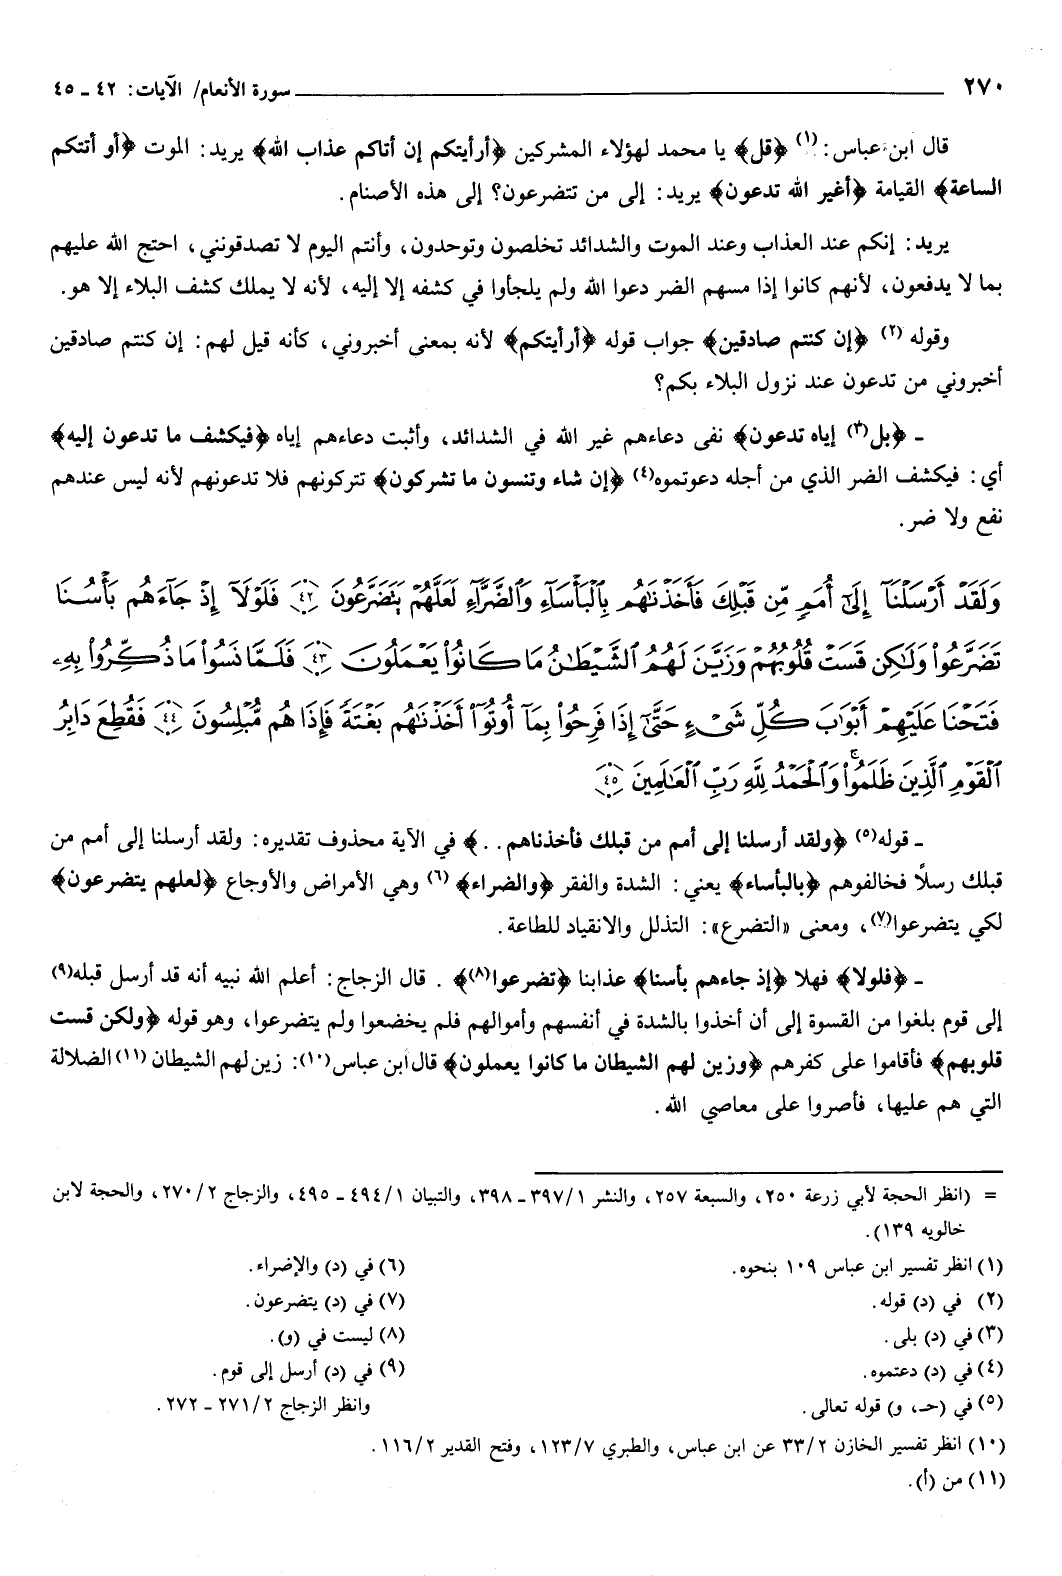 ٢٧٠ سورة الأنعام/ الآيات: ٤٢ ـ ٤٥
قال ابن عباس:(١) ﴿قل﴾ يا محمد لهؤلاء المشركين ﴿أرأيتكم إن أتاكم عذاب الله﴾ يريد: الموت ﴿أو أتتكم
الساعة﴾ القيامة ﴿أغير الله تدعون﴾ يريد: إلى من تتضرعون؟ إلى هذه الأصنام.
يريد: إنكم عند العذاب وعند الموت والشدائد تخلصون وتوحدون، وأنتم اليوم لا تصدقونني، احتج الله عليهم
بما لا يدفعون، لأنهم كانوا إذا مسهم الضر دعوا الله ولم يلجأوا في كشفه إلا إليه، لأنه لا يملك كشف البلاء إلا هو.
وقوله (٢) ﴿إن كنتم صادقين﴾ جواب قوله ﴿أرأيتكم﴾ لأنه بمعنى أخبروني، كأنه قيل لهم: إن كنتم صادقين
أخبروني من تدعون عند نزول البلاء بكم؟
ـ ﴿بل(٣) إياه تدعون﴾ نفى دعاءهم غير الله في الشدائد، وأثبت دعاءهم إياه ﴿فيكشف ما تدعون إليه﴾
أي: فيكشف الضر الذي من أجله دعوتموه(٤) ﴿إن شاء وتنسون ما تشركون﴾ تتركونهم فلا تدعونهم لأنه ليس عندهم
نفع ولا ضر.
وَلَقَدْ أَرْسَلْنَآ إِلَىٰٓ أُمَمٍ مِّن قَبْلِكَ فَأَخَذْنَٰهُم بِٱلْبَأْسَآءِ وَٱلضَّرَّآءِ لَعَلَّهُمْ يَتَضَرَّعُونَ ٤٢ فَلَوْلَآ إِذْ جَآءَهُم بَأْسُنَا
تَضَرَّعُوا۟ وَلَٰكِن قَسَتْ قُلُوبُهُمْ وَزَيَّنَ لَهُمُ ٱلشَّيْطَٰنُ مَا كَانُوا۟ يَعْمَلُونَ ٤٣ فَلَمَّا نَسُوا۟ مَا ذُكِّرُوا۟ بِهِۦ
فَتَحْنَا عَلَيْهِمْ أَبْوَٰبَ كُلِّ شَىْءٍ حَتَّىٰٓ إِذَا فَرِحُوا۟ بِمَآ أُوتُوٓا۟ أَخَذْنَٰهُم بَغْتَةً فَإِذَا هُم مُّبْلِسُونَ ٤٤ فَقُطِعَ دَابِرُ
ٱلْقَوْمِ ٱلَّذِينَ ظَلَمُوا۟ ۚ وَٱلْحَمْدُ لِلَّهِ رَبِّ ٱلْعَٰلَمِينَ ٤٥
ـ قوله(٥) ﴿ولقد أرسلنا إلى أمم من قبلك فأخذناهم..﴾ في الآية محذوف تقديره: ولقد أرسلنا إلى أمم من
قبلك رسلاً فخالفوهم ﴿بالبأساء﴾ يعني: الشدة والفقر ﴿والضراء﴾ (٦) وهي الأمراض والأوجاع ﴿لعلهم يتضرعون﴾
لكي يتضرعوا(٧)، ومعنى «التضرع»: التذلل والانقياد للطاعة.
ـ ﴿فلولا﴾ فهلا ﴿إذ جاءهم بأسنا﴾ عذابنا ﴿تضرعوا(٨)﴾. قال الزجاج: أعلم الله نبيه أنه قد أرسل قبله(٩)
إلى قوم بلغوا من القسوة إلى أن أخذوا بالشدة في أنفسهم وأموالهم فلم يخضعوا ولم يتضرعوا، وهو قوله ﴿ولكن قست
قلوبهم﴾ فأقاموا على كفرهم ﴿وزين لهم الشيطان ما كانوا يعملون﴾ قال ابن عباس(١٠): زين لهم الشيطان (١١) الضلالة
التي هم عليها، فأصروا على معاصي الله.
= (انظر الحجة لأبي زرعة ٢٥٠، والسبعة ٢٥٧، والنشر ٣٩٧/١ ـ ٣٩٨، والتبيان ٤٩٤/١ ـ ٤٩٥، والزجاج ٢٧٠/٢، والحجة لابن
خالويه ١٣٩).
(١) انظر تفسير ابن عباس ١٠٩ بنحوه.
(٢) في (د) قوله.
(٣) في (د) بلى.
(٤) في (د) دعتموه.
(٥) في (حـ، و) قوله تعالى.
(٦) في (د) والإضراء.
(٧) في (د) يتضرعون.
(٨) ليست في (و).
(٩) في (د) أرسل إلى قوم.
وانظر الزجاج ٢٧١/٢ ـ ٢٧٢.
(١٠) انظر تفسير الخازن ٣٣/٢ عن ابن عباس، والطبري ١٢٣/٧، وفتح القدير ١١٦/٢.
(١١) من (أ).